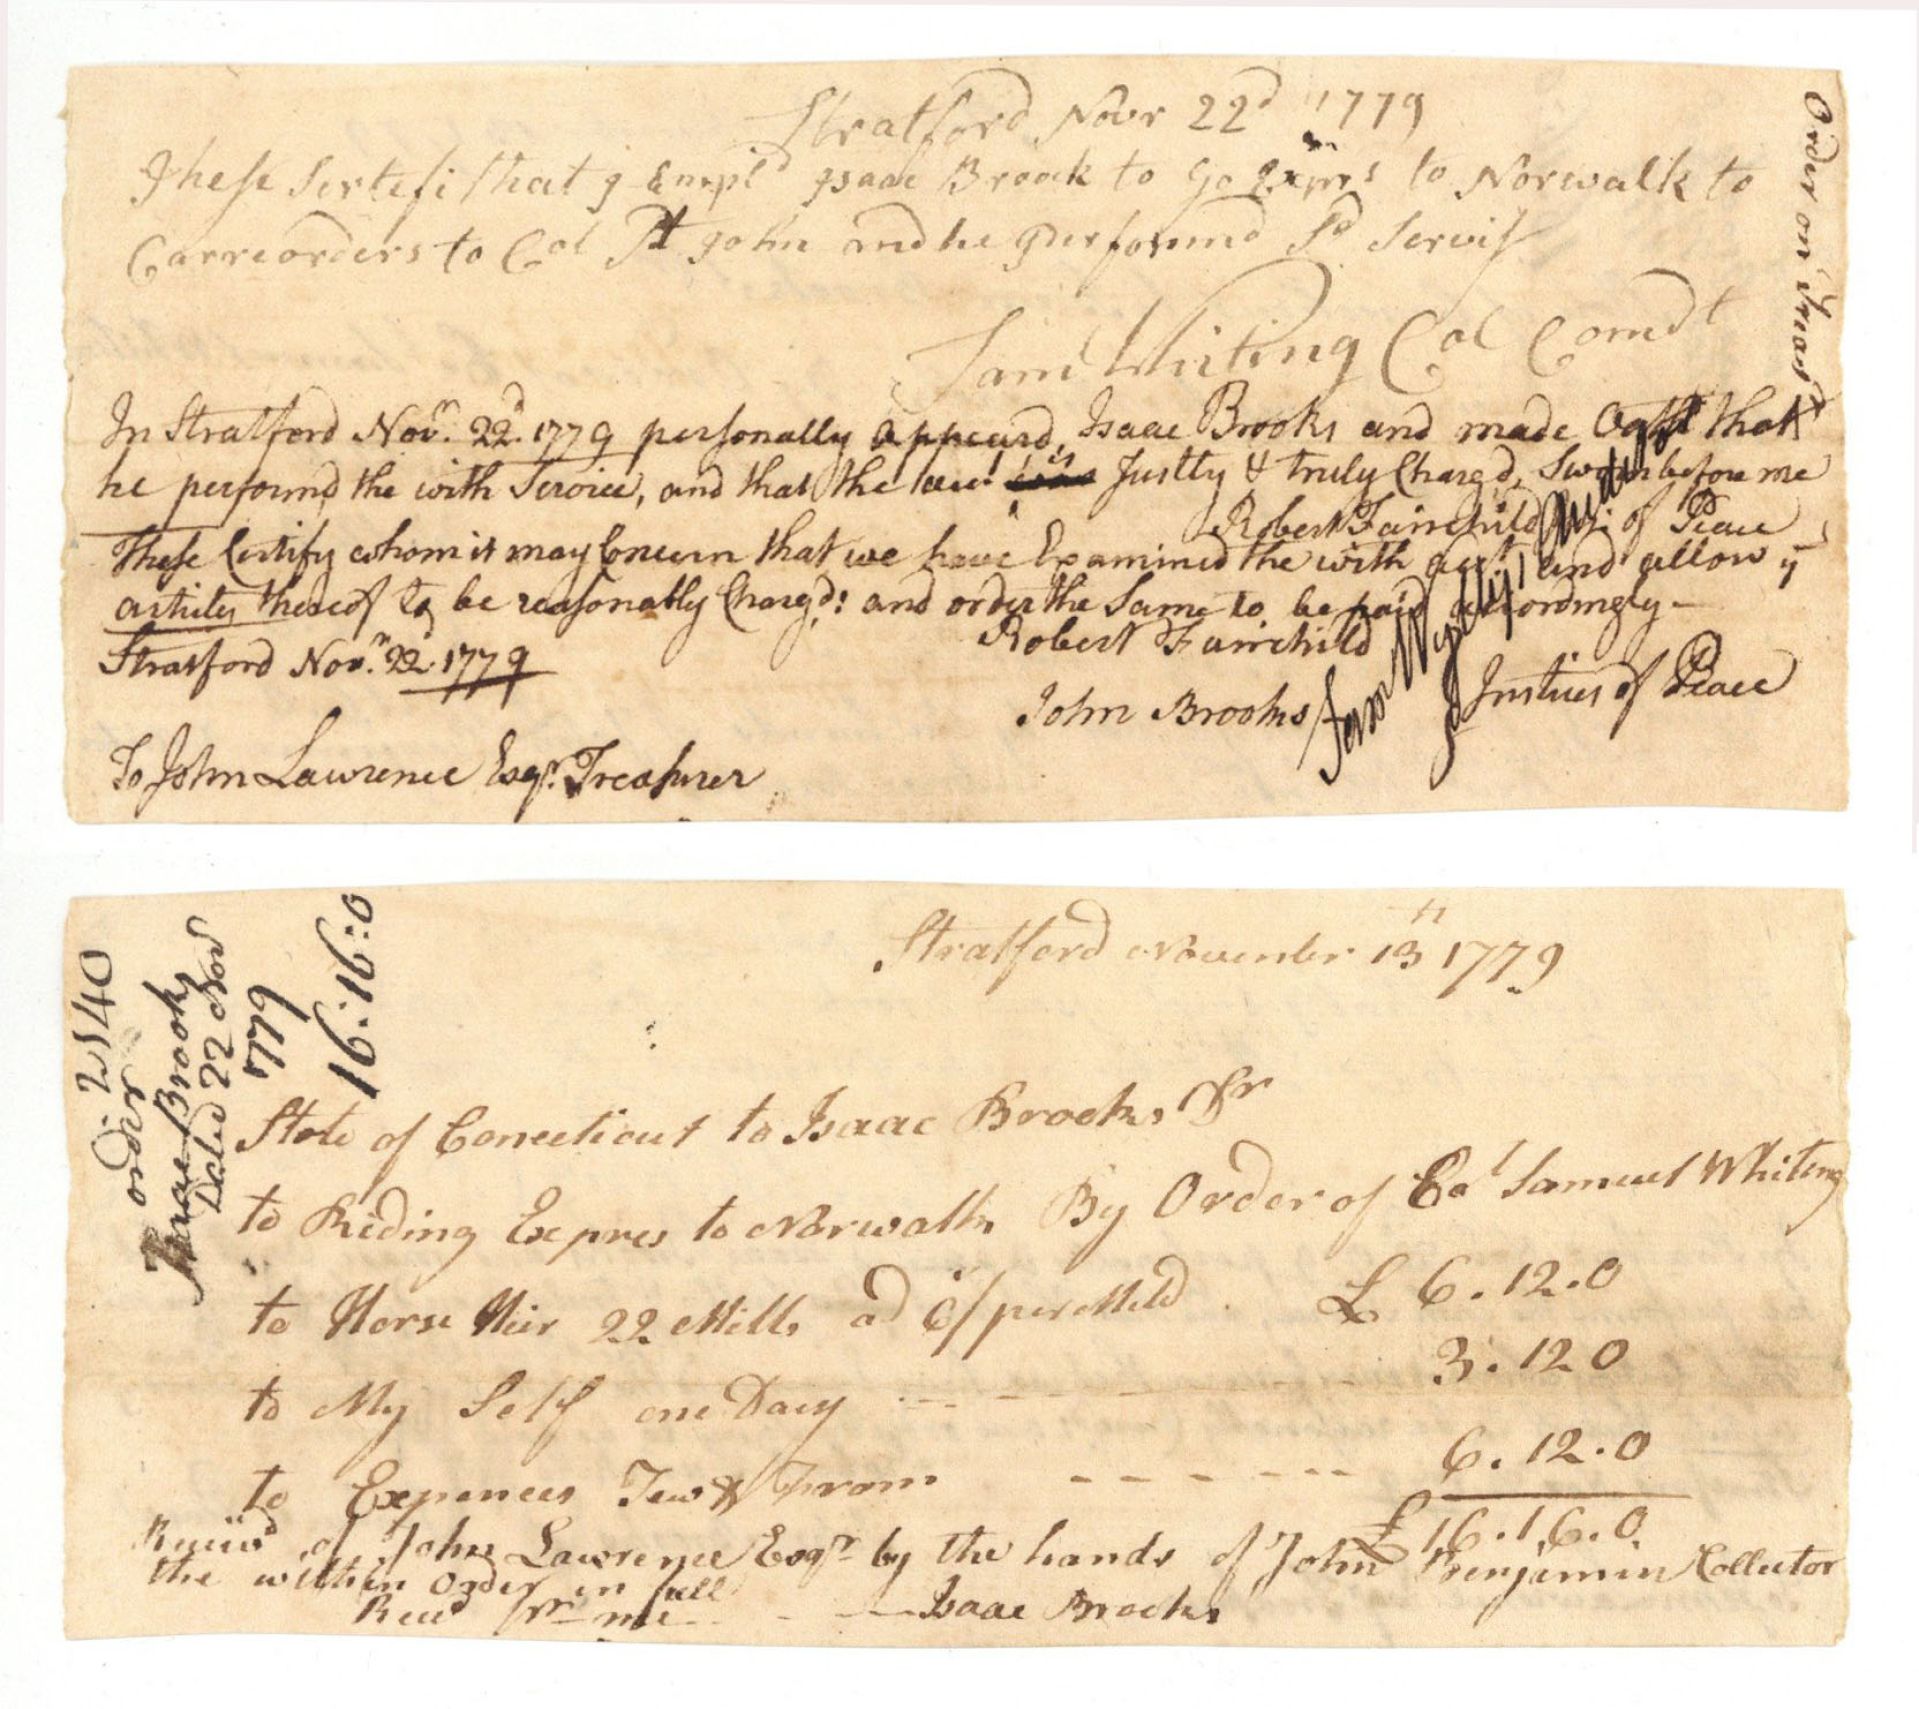 Stratford Novr 22d 1779
These Sertefi that I Empld Isaac Broock to Go Expres to Norwalk to
Carre orders to Col St John and he Purformd Sd Servis
Saml Whiting Col Comdt
In Stratford Novr. 22d. 1779 personally appeard, Isaac Brooks and made Oath that
he performd, the with Service, and that the acct. is Justly & truly Charg'd, Sworn before me
Robert Fairchild Just: of Peace
These Certify whom it may Concern that we have Examined the with acct, and allow ye
articles thereof to be reasonably Charg'd: and order the Same to be paid accordingly
Robert Fairchild
Stratford Novr. 22d. 1779
John Brooks
Justices of Peace
To John Lawrence Esqr. Treasurer
Order on Treasr
2140
order
Isaac Brooks
Dated 22 Nov
1779
16:16:0
Stratford November 13th 1779
State of Conecticut to Isaac Brooks Dr
to Rideing Expres to Norwalk By Order of Col Samuel Whiting
to Horse Heir 22 Mills ad 6/ per Mild £ 6.12.0
to My Self one Day 3.12 0
to Expences Tew & From 6.12.0
£ 16.16.0
Receiivd of John Lawrence Esqr by the hands of John Benjamin Collector
the within Order in full
Recd pr me Isaac Brooks